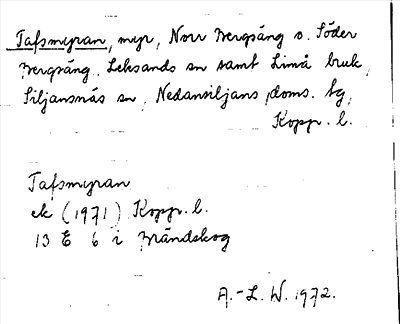 Tafsmyran, myr, Norr Bergsäng o. Söder
Bergsäng, Leksands sn samt Limå bruk,
Siljansnäs sn, Nedansiljans doms. tg,
Kopp. l.
Tafsmyran
ek (1971) Kopp. l.
13 E 6 i Brändskog
A.-L. W. 1972.